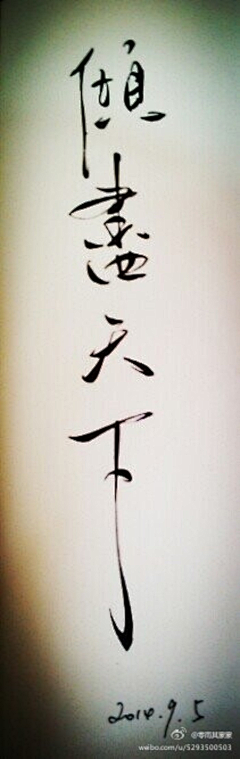 傾盡天下
2014.9.5
@零雨其家家
weibo.com/u/5293500503